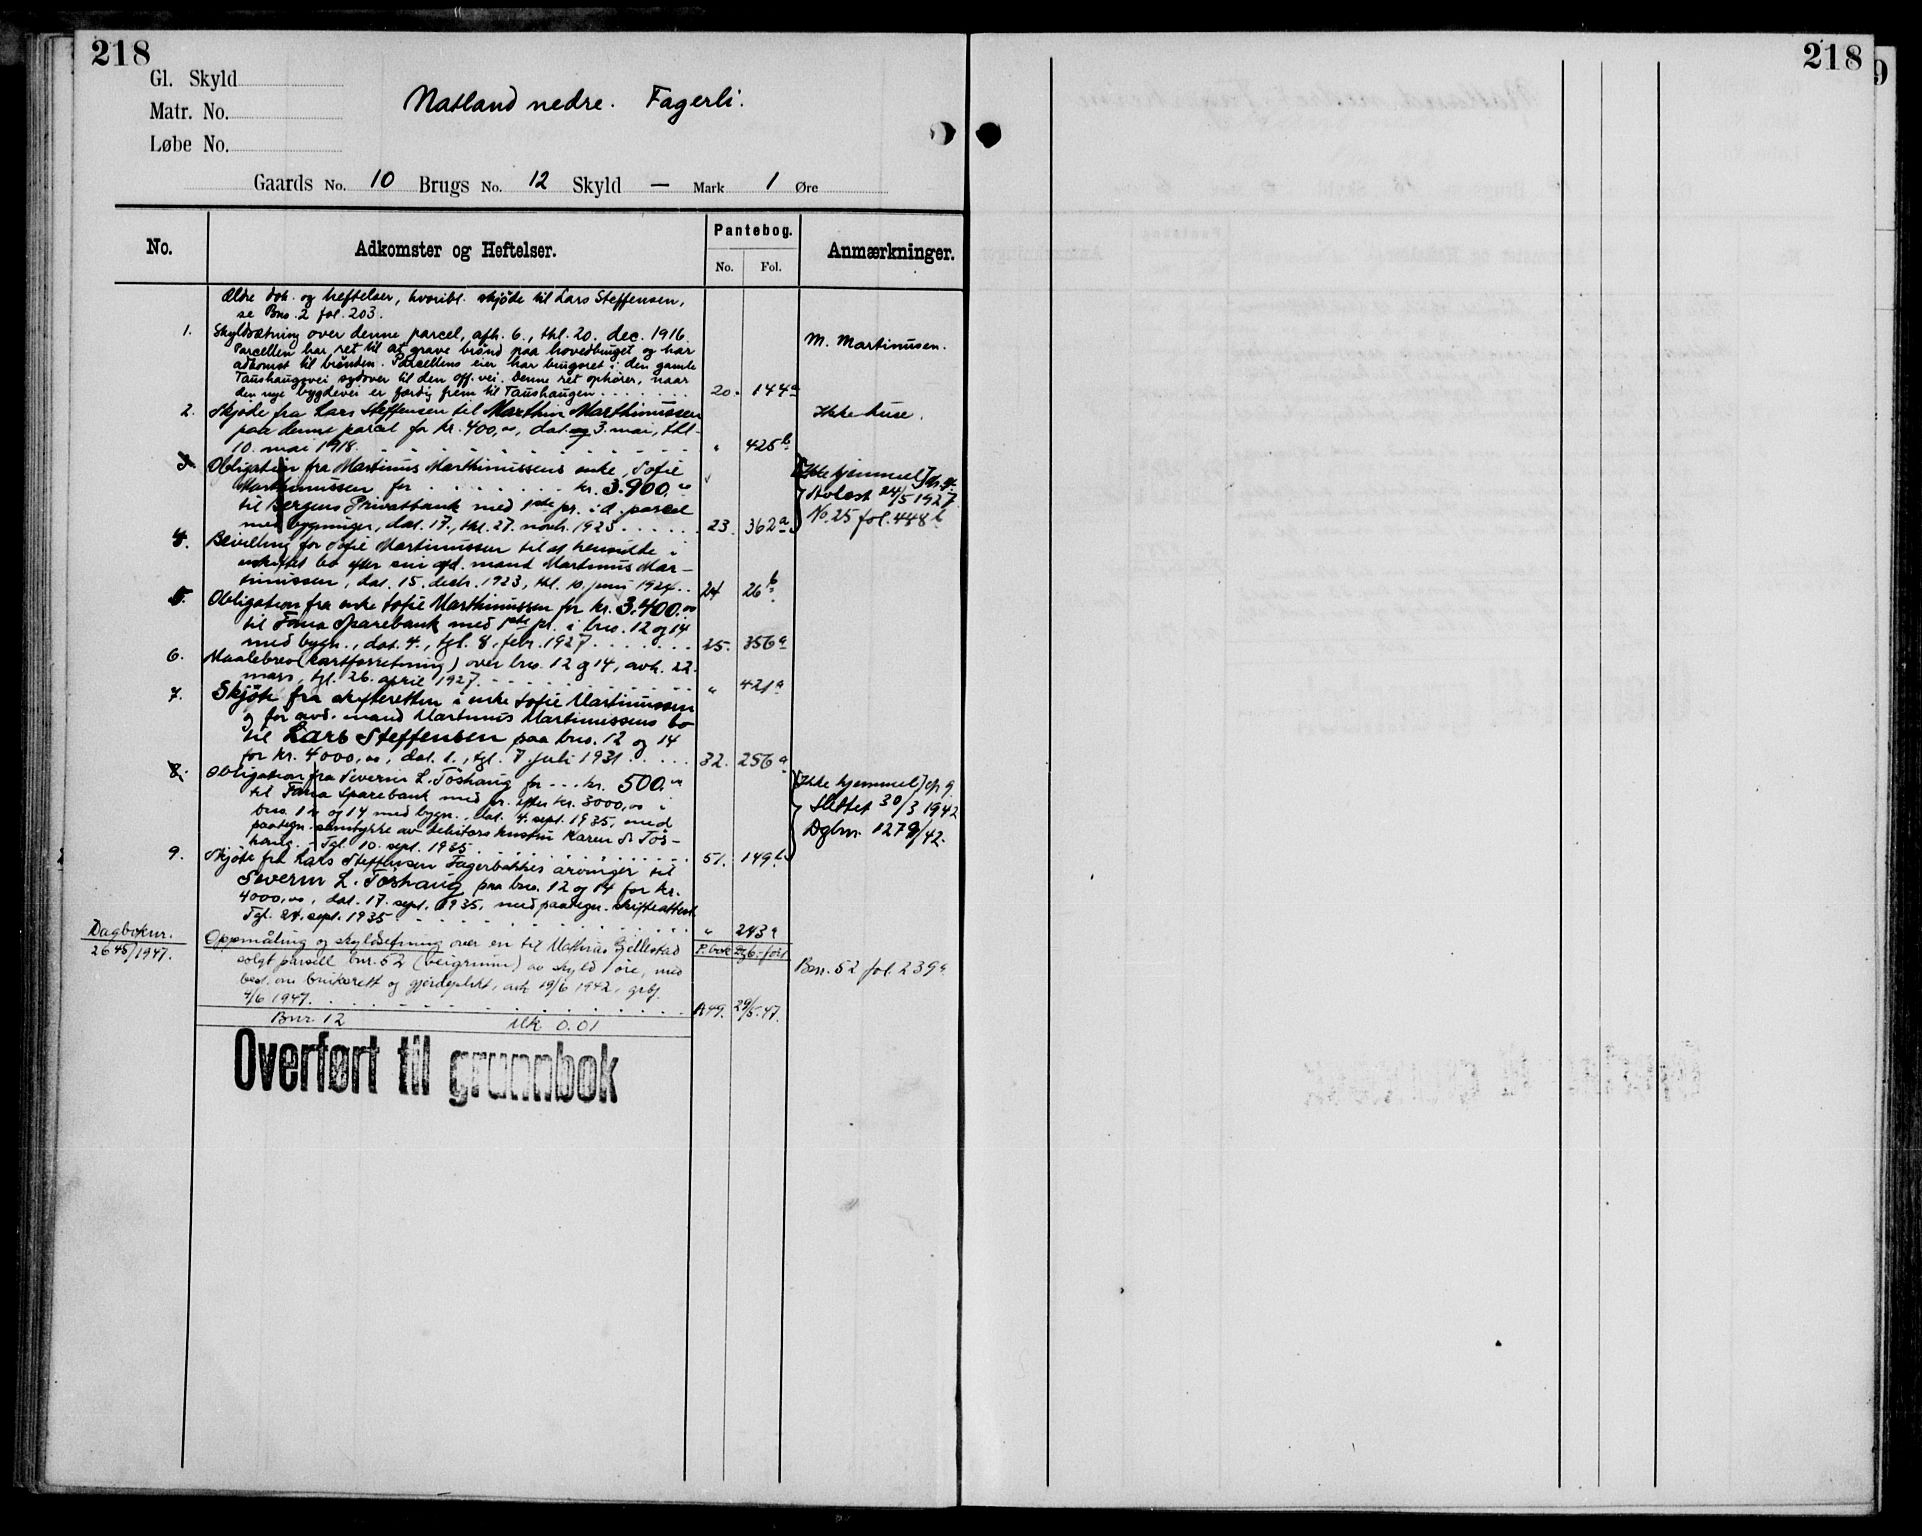 218
218
Gl. Skyld
Matr. No.
Løbe No.
Natland nedre. Fagerli.
Gaards No. 10 Brugs No. 12 Skyld — Mark 1 Øre
No. Adkomster og Heftelser. Pantebog. No. Fol. Anmærkninger.
Ældre dok. og heftelser, hvoribl. skjøde til Lars Steffensen,
se Bno. 2 fol. 203.
1. Skyldsætning over denne parcel, afh. 6., thl. 20. dec. 1916. M. Martinusen.
Parcellen har ret til at grave brønd paa hovedbruget og har
adkomst til brønden. Parcellens eier har brugsret i den gamle
Taushaugsvei sydover til den off. vei. Denne ret ophører, naar
den nye bygdevei er færdig frem til Taushaugen . . . . 20. 144a
2. Skjøde fra Lars Steffensen til Marthin Marthinussen Ikke huse.
paa denne parcel for kr. 400,00, dat. og 3. mai, thl.
10. mai 1918 . . . . " 425b
3. Obligation fra Martinus Marthinussens enke, Sofie [Ikke hjemmel]
Marthinussen for . . . . kr. 3.900.00 Avlest 24/5 1927
til Bergens Privatbank med 1ste pr. i d. parcel No. 25 fol. 448b
med bygninger, dat. 17., thl. 27. novb. 1923 . . . . 23. 362a
4. Bevilling for Sofie Martinussen til at hensidde i
uskiftet bo efter sin afd. mand Martinus Mar-
tinussen, dat. 15. decb. 1923, thl. 10. juni 1924 . . 24 26b
5. Obligation fra enke Sofie Marthinussen for kr. 3.400.00
til Fana Sparebank med 1ste pr. i bno. 12 og 14
med bygn., dat. 4., tgl. 8. febr. 1927 . . . . 25. 356a
6. Maalebrev (kartforretning) over bno. 12 og 14, avh. 22.
mars, tgl. 26. april 1927 . . . . " 421a
7. Skjøte fra skifteretten i enke Sofie Martinussen
og for avd. mand Martinus Martinussens bo
til Lars Steffensen paa bno. 12 og 14
for kr. 4000,00, dat. 1., tgl. 7. juli 1931 . . . . 32. 256a
8. Obligation fra Severin L. Töshaug for . . . kr. 500.00 [Ikke hjemmel]
til Fana Sparebank med pr. efter kr. 3000,00 i Slettet 30/3 1942
bno. 12 og 14 med bygn., dat. 4. sept. 1935, med Dgbnr. 1279/42.
paategn. samtykke av debitors hustru Karen S. Tös-
haug. - Tgl. 10. sept. 1935 . . . . 51. 149b
9. Skjøte fra Lars Steffensen Fagerbakkes arvinger til
Severin L. Töshaug paa bno. 12 og 14 for kr.
4000,00, dat. 17. sept. 1935, med paategn. skifteattest.
Tgl. 24. sept. 1935 . . . . " 243a
Dagboknr. Oppmåling og skyldsetning over en til Mathias Gjellestad P.bok Dgb.ført
2645/1947. solgt parsell bnr. 52 (veigrunn) av skyld 1 øre, med Bnr. 52 fol. 239a
best. om bruksrett og gjerdeplikt, avh. 19/6 1942,
4/6 1947. . . . . A49. 29/5.47.
Bnr. 12 mk 0.01
Overført til grunnbok